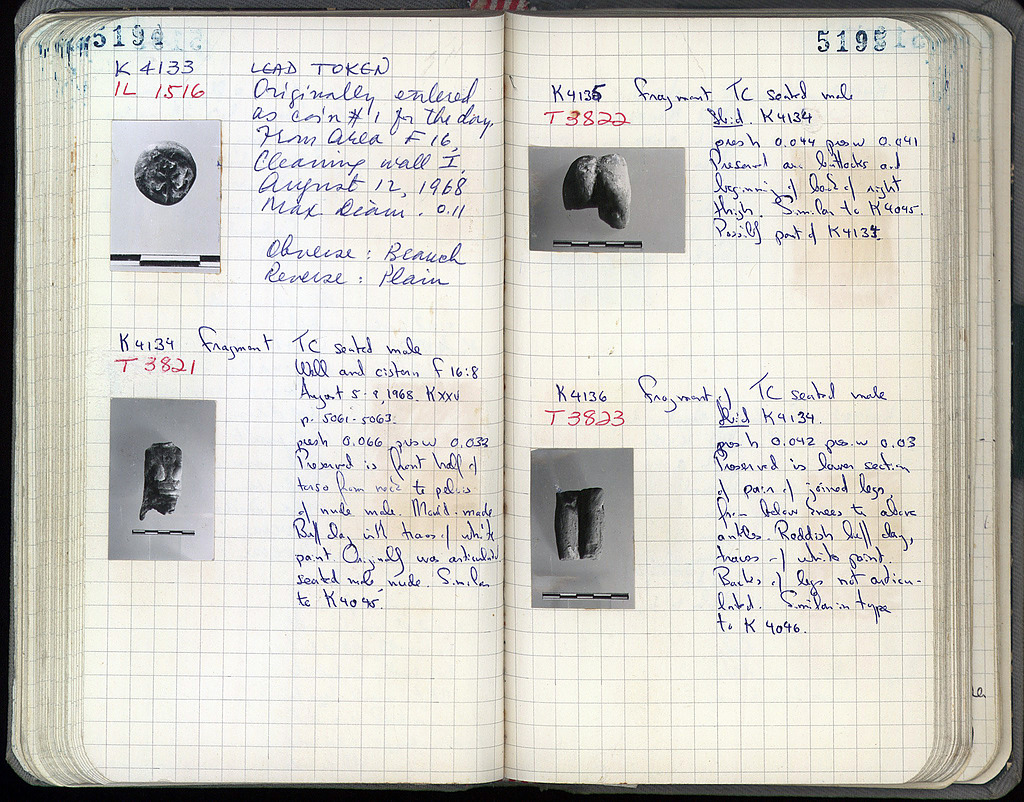 5194
K 4133 LEAD TOKEN
IL 1516 Originally entered
as coin # 1 for the day,
From Area F 16,
Cleaning wall I,
August 12, 1968
Max Diam. 0.11
Obverse: Branch
Reverse: Plain
K 4134 fragment TC seated male
T 3821
Well and cistern F 16:8
August 5-9, 1968. KXXV
p. 5061-5063.
pres h 0.066 pres w 0.033
Preserved is front half of
torso from neck to pelvis
of nude male. Mould-made
Buff clay with traces of white
paint. Originally was articulated
seated male, nude. Similar
to K4045.
5195
K4135 fragment TC seated male
T 3822 Ibid. K4134
pres h 0.044 pres w 0.041
Preserved are buttocks and
beginning of back of right
thigh. Similar to K4045.
Possibly part of K4134.
K4136 Fragment of TC seated male
T 3823 Ibid K4134.
pres h 0.042 pres. w 0.03
Preserved is lower section
of pair of joined legs,
from below knees to above
ankles. Reddish buff clay,
traces of white paint.
Backs of legs not articu-
lated. Similar in type
to K 4046.